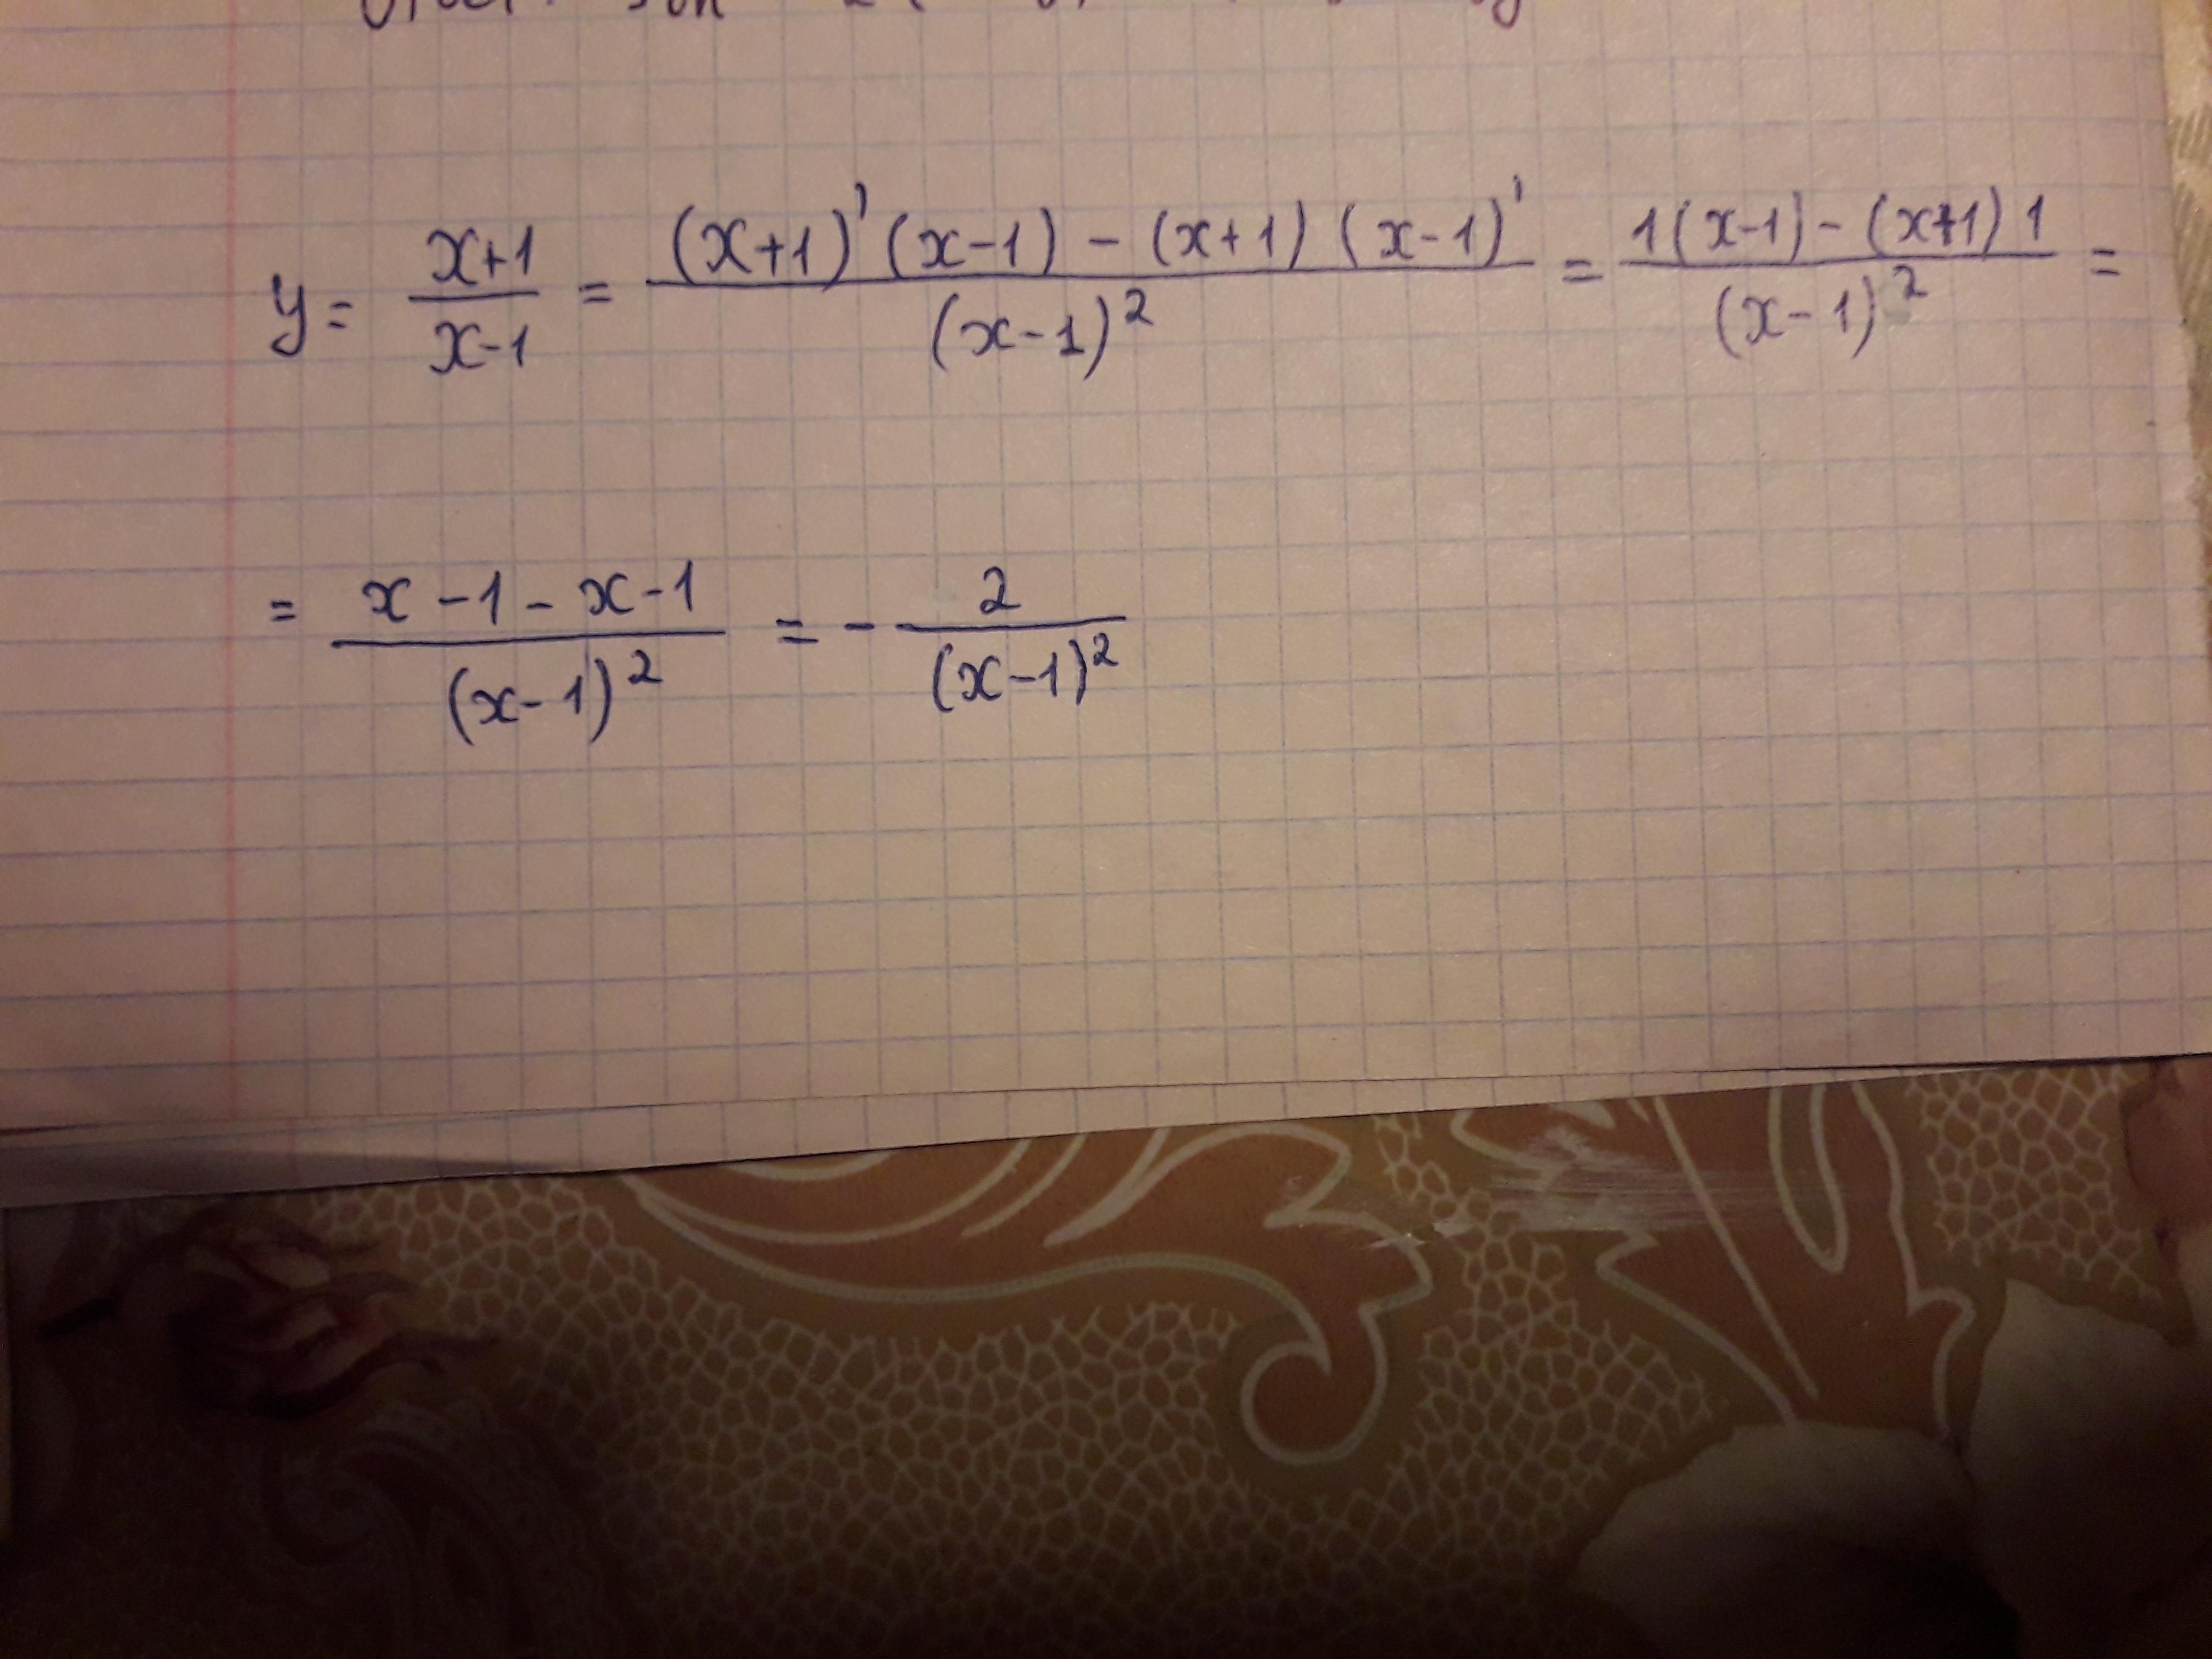 y = \frac{x+1}{x-1} = \frac{(x+1)'(x-1) - (x+1)(x-1)'}{(x-1)^2} = \frac{1(x-1) - (x+1)1}{(x-1)^2} =
= \frac{x-1-x-1}{(x-1)^2} = -\frac{2}{(x-1)^2}